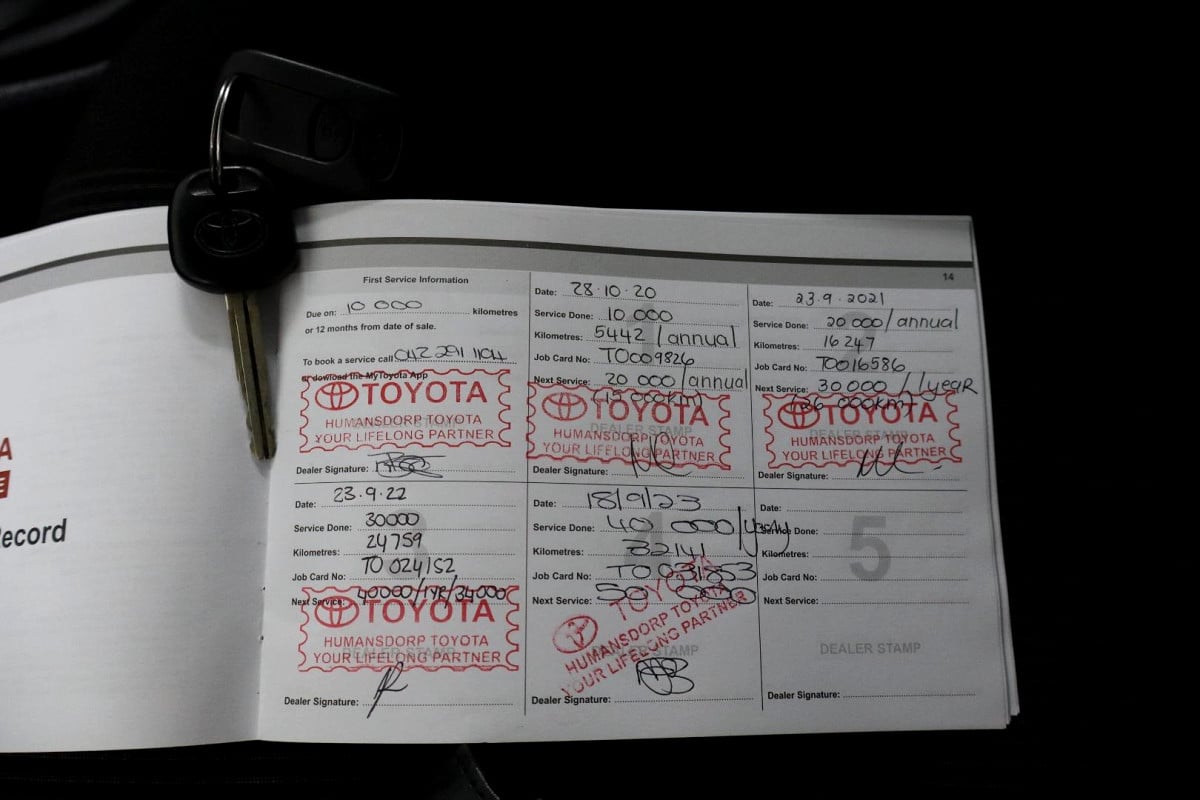 A
Record
14
First Service Information
Due on: 10 000 kilometres
or 12 months from date of sale.
To book a service call 042 291 1104
or download the MyToyota App
TOYOTA
HUMANSDORP TOYOTA
YOUR LIFELONG PARTNER
Dealer Signature:
1
Date: 28.10.20
Service Done: 10 000
Kilometres: 5442 / annual
Job Card No: TO009826
Next Service: 20 000 / annual
(15 000km)
TOYOTA
DEALER STAMP
HUMANSDORP TOYOTA
YOUR LIFELONG PARTNER
Dealer Signature:
2
Date: 23.9.2021
Service Done: 20 000 / annual
Kilometres: 16 247
Job Card No: TO016586
Next Service: 30 000 / 1 year
(26 000km)
TOYOTA
DEALER STAMP
HUMANSDORP TOYOTA
YOUR LIFELONG PARTNER
Dealer Signature:
3
Date: 23.9.22
Service Done: 30000
Kilometres: 24759
Job Card No: TO 024152
Next Service: 40000/1YR/34000
TOYOTA
HUMANSDORP TOYOTA
DEALER STAMP
YOUR LIFELONG PARTNER
Dealer Signature:
4
Date: 18/9/23
Service Done: 40 000/Yearly
Kilometres: 32141
Job Card No: TO031853
Next Service: 50 000
TOYOTA
HUMANSDORP TOYOTA
YOUR LIFELONG PARTNER
DEALER STAMP
Dealer Signature:
5
Date:
Service Done:
Kilometres:
Job Card No:
Next Service:
DEALER STAMP
Dealer Signature: